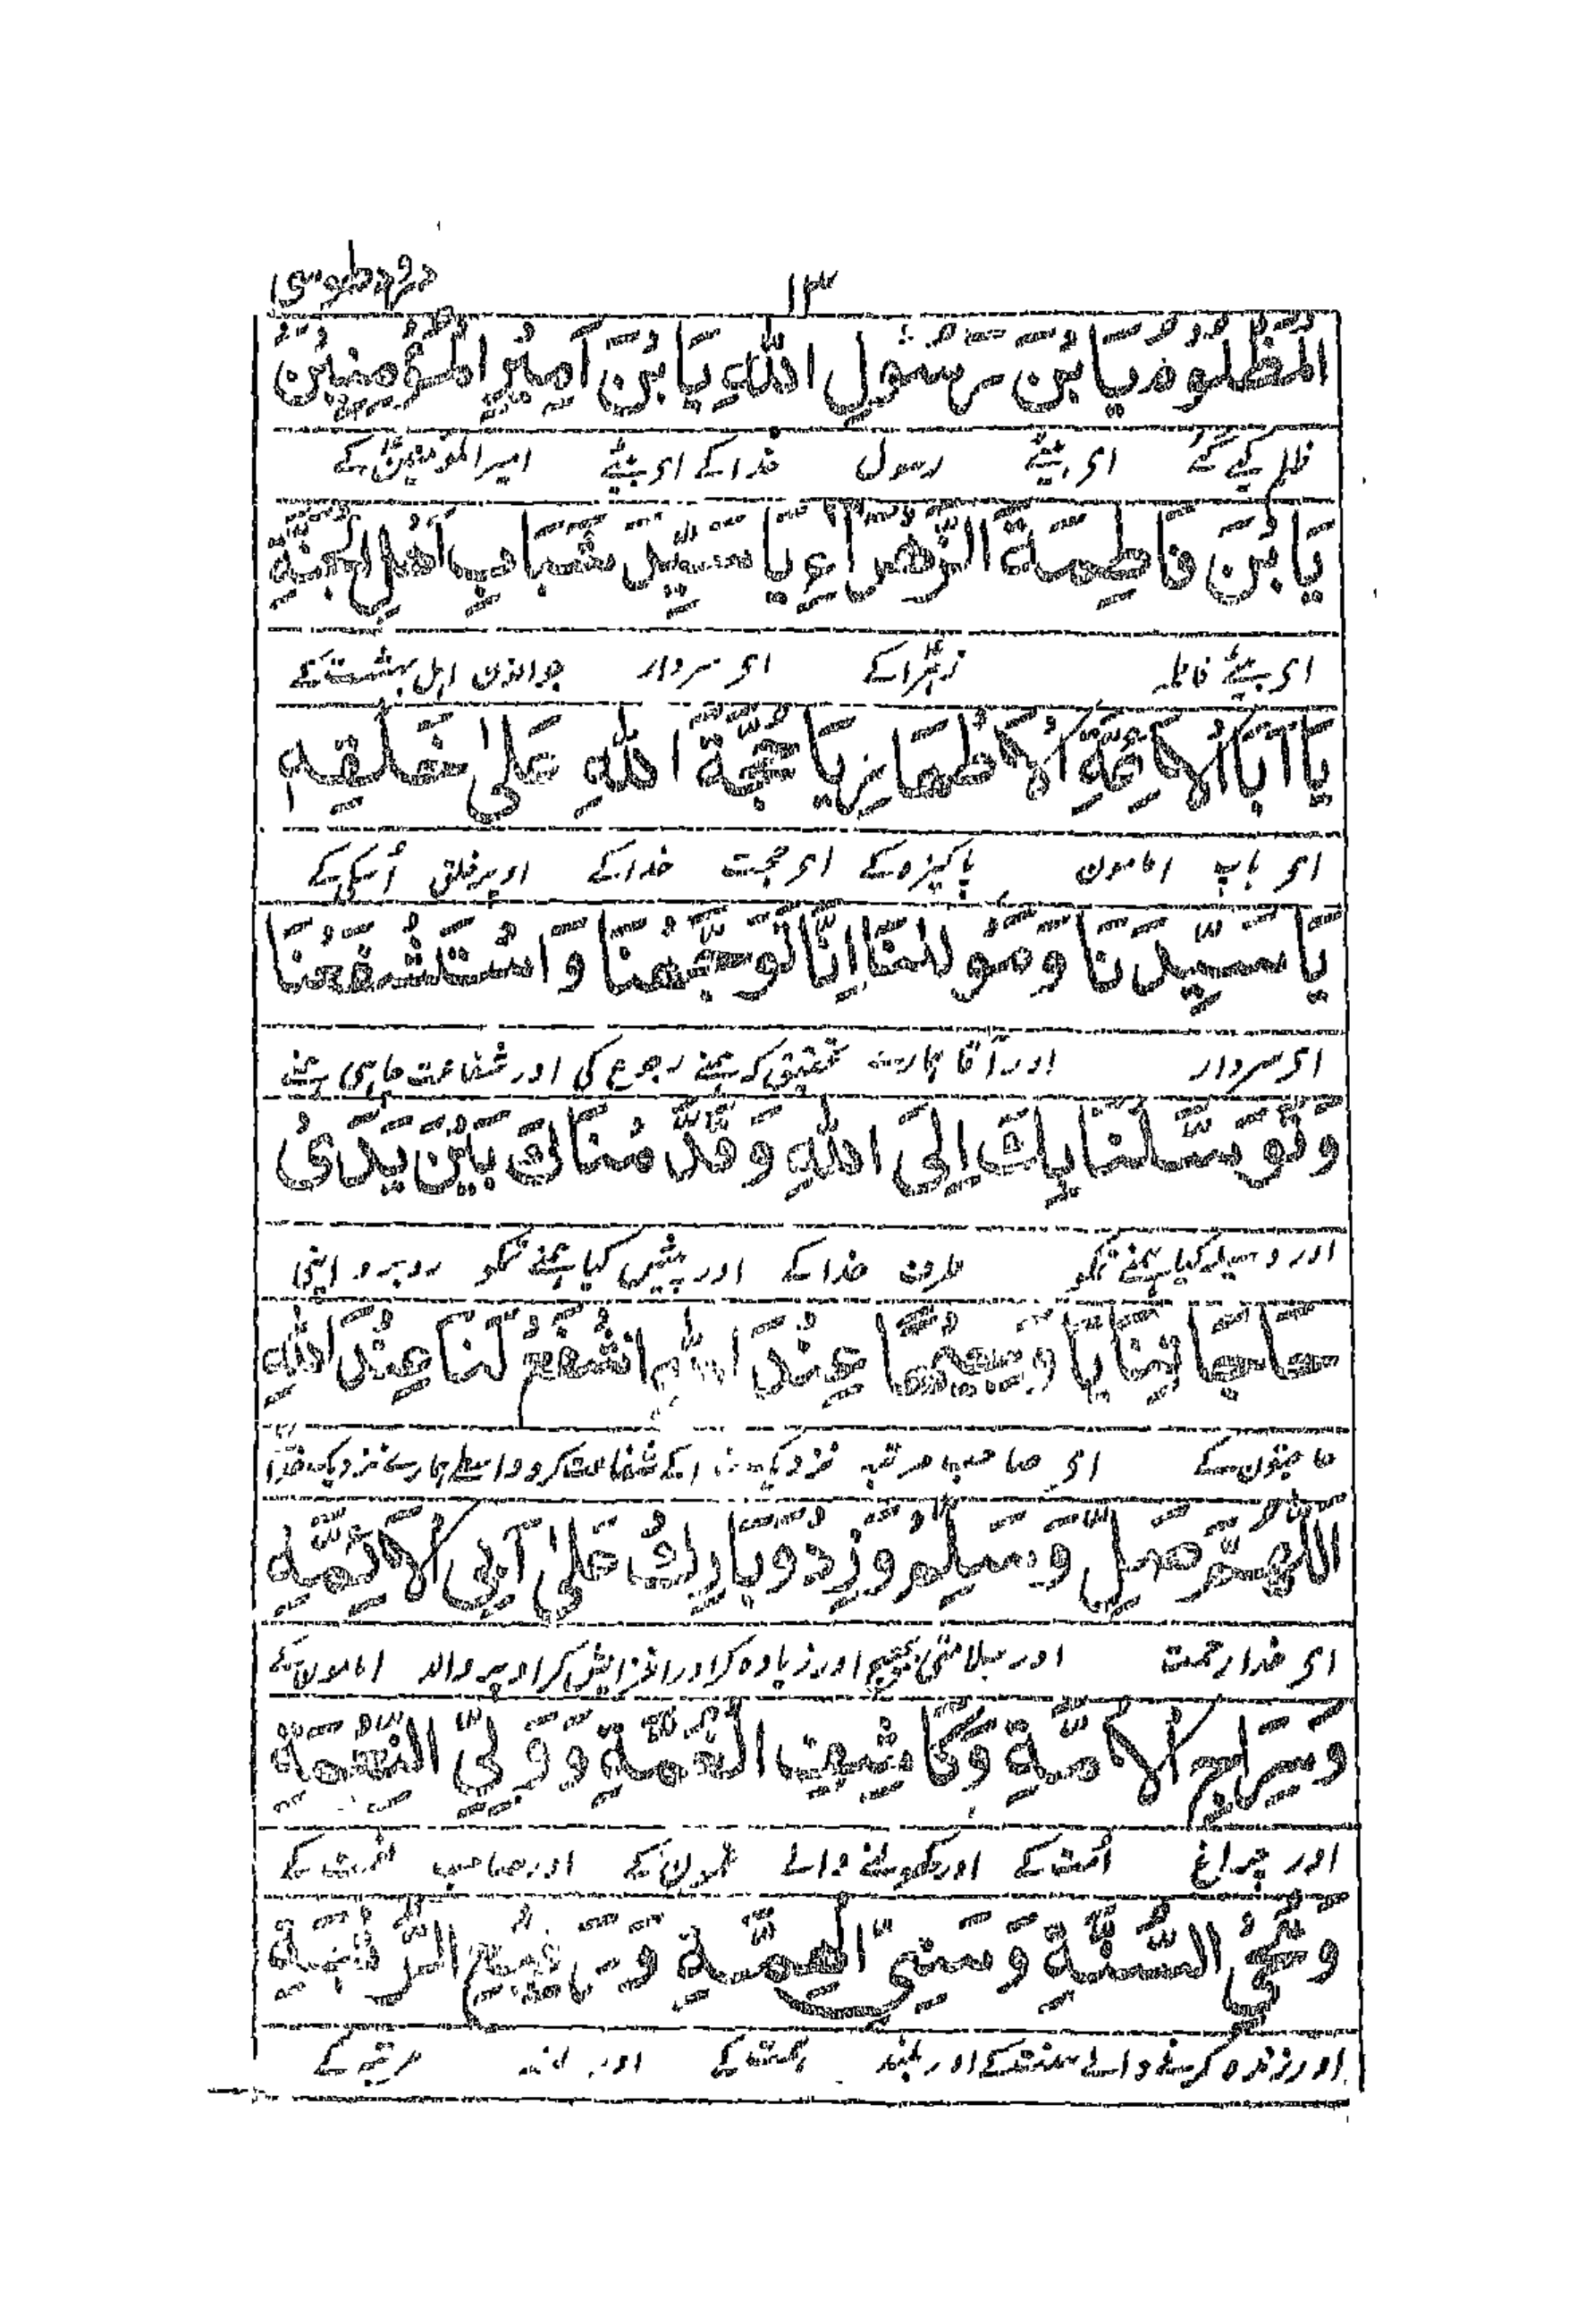 ۱۳ درود طوسی
الْمَظْلُوْمُ يَا بْنَ رَسُوْلِ اللهِ يَا بْنَ اَمِيْرِ الْمُؤْمِنِيْنَ
ظلم کیے گئے ای بیٹے رسول خدا کے ای بیٹے امیر المومنین کے
يَا بْنَ فَاطِمَةَ الزَّهْرَاءِ يَا سَيِّدَ شَبَابِ اَهْلِ الْجَنَّةِ
ای بیٹے فاطمہ زہرا کے ای سردار جوانون اہل بہشت کے
يَا اَبَا الْاَئِمَّةِ الْاَطْهَارِ يَا حُجَّةَ اللهِ عَلٰى خَلْقِهٖ
ای باپ امامون پاکیزہ کے ای حجت خدا کے اوپر خلق اُسکی کے
يَا سَيِّدَنَا وَمَوْلٰنَا اِنَّا تَوَجَّهْنَا وَاسْتَشْفَعْنَا
ای سردار اور آقا ہمارے تحقیق کہ ہمنے رجوع کی اور شفاعت چاہی ہمنے
وَتَوَسَّلْنَا بِكَ اِلَى اللهِ وَقَدَّمْنَاكَ بَيْنَ يَدَيْ
اور وسیلہ کیا ہمنے تمکو طرف خدا کے اور پیش کیا ہمنے تمکو روبرو اپنی
حَاجَاتِنَا يَا وَجِيْهًا عِنْدَ اللهِ اشْفَعْ لَنَا عِنْدَ اللهِ
حاجتون کے ای صاحب مرتبہ نزدیک کے شفاعت کرو واسطے ہمارے نزدیک خدا
اَللّٰهُمَّ صَلِّ وَسَلِّمْ وَزِدْ وَبَارِكْ عَلٰى اَبِي الْاَئِمَّةِ
ای خدا رحمت اور سلامتی بھیج اور زیادہ کر اور افزایش کر اوپر والد امامون کے
وَسِرَاجِ الْاُمَّةِ وَكَاشِفِ الْغُمَّةِ وَوَلِيِّ النِّعْمَةِ
اور چراغ اُمت کے اور کھولنے والے غمون کے اور صاحب نعمت کے
وَمُحْيِ السُّنَّةِ وَسَنِيِّ الْهِمَّةِ وَرَفِيْعِ الرُّتْبَةِ
اور زندہ کرنے والے سنت کے اور بلند ہمت کے اور بلند مرتبہ کے